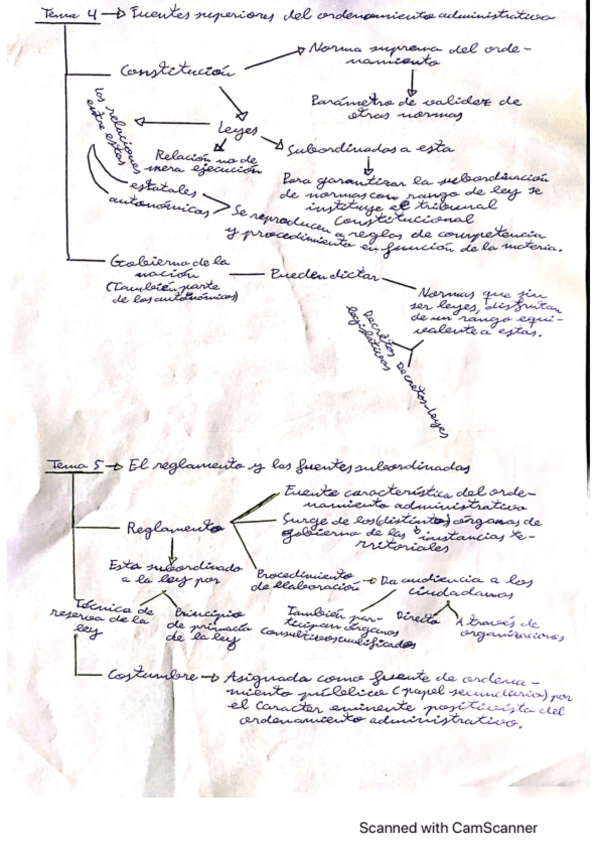 Tema 4 → Fuentes superiores del ordenamiento administrativo
Constitución
Norma suprema del orde-
namiento
Parámetro de validez de
otras normas
Leyes
Las relaciones
entre estas
Relación no de
mera ejecución
Subordinadas a esta
Para garantizar la subordinación
de normas con rango de ley se
instituye el tribunal
Constitucional
estatales
autonómicas
Se reproducen a reglas de competencia
y procedimiento en función de la materia.
Gobierno de la
nación
(También parte
de los autonómicos)
Pueden dictar
Normas que sin
ser leyes, disfrutan
de un rango equi-
valente a estas.
Decretos
legislativos
Decretos-leyes
Tema 5 → El reglamento y las fuentes subordinadas
Reglamento
Fuente característica del orde-
namiento administrativo
Surge de los (distintos) órganos de
gobierno de las instancias te-
rritoriales
Esta subordinado
a la ley por
Técnica de
reserva de la
ley
Principio
de primacía
de la ley
Procedimiento
de elaboración
→ Da audiencia a los
ciudadanos
También par-
ticipan órganos
consultivos cualificados
Directo
A través de
organizaciones
Costumbre → Asignada como fuente de ordena-
miento público (papel secundario) por
el caracter eminente positivista del
ordenamiento administrativo.
Scanned with CamScanner